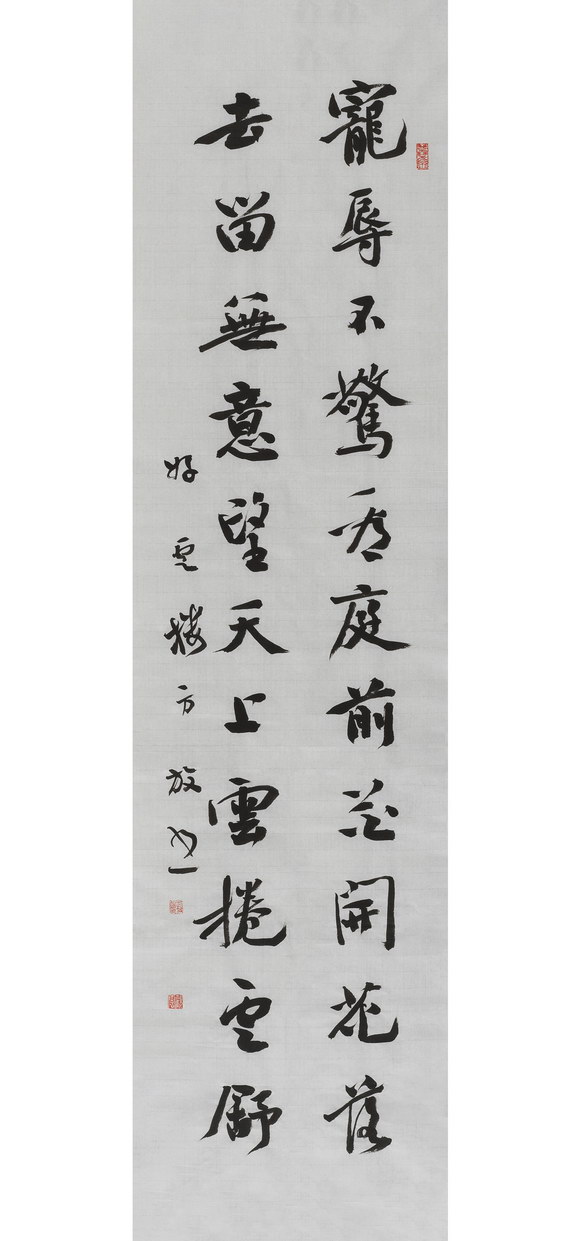 寵辱不驚看庭前花開花落
去留無意望天上雲捲雲舒
好雲樓方放書